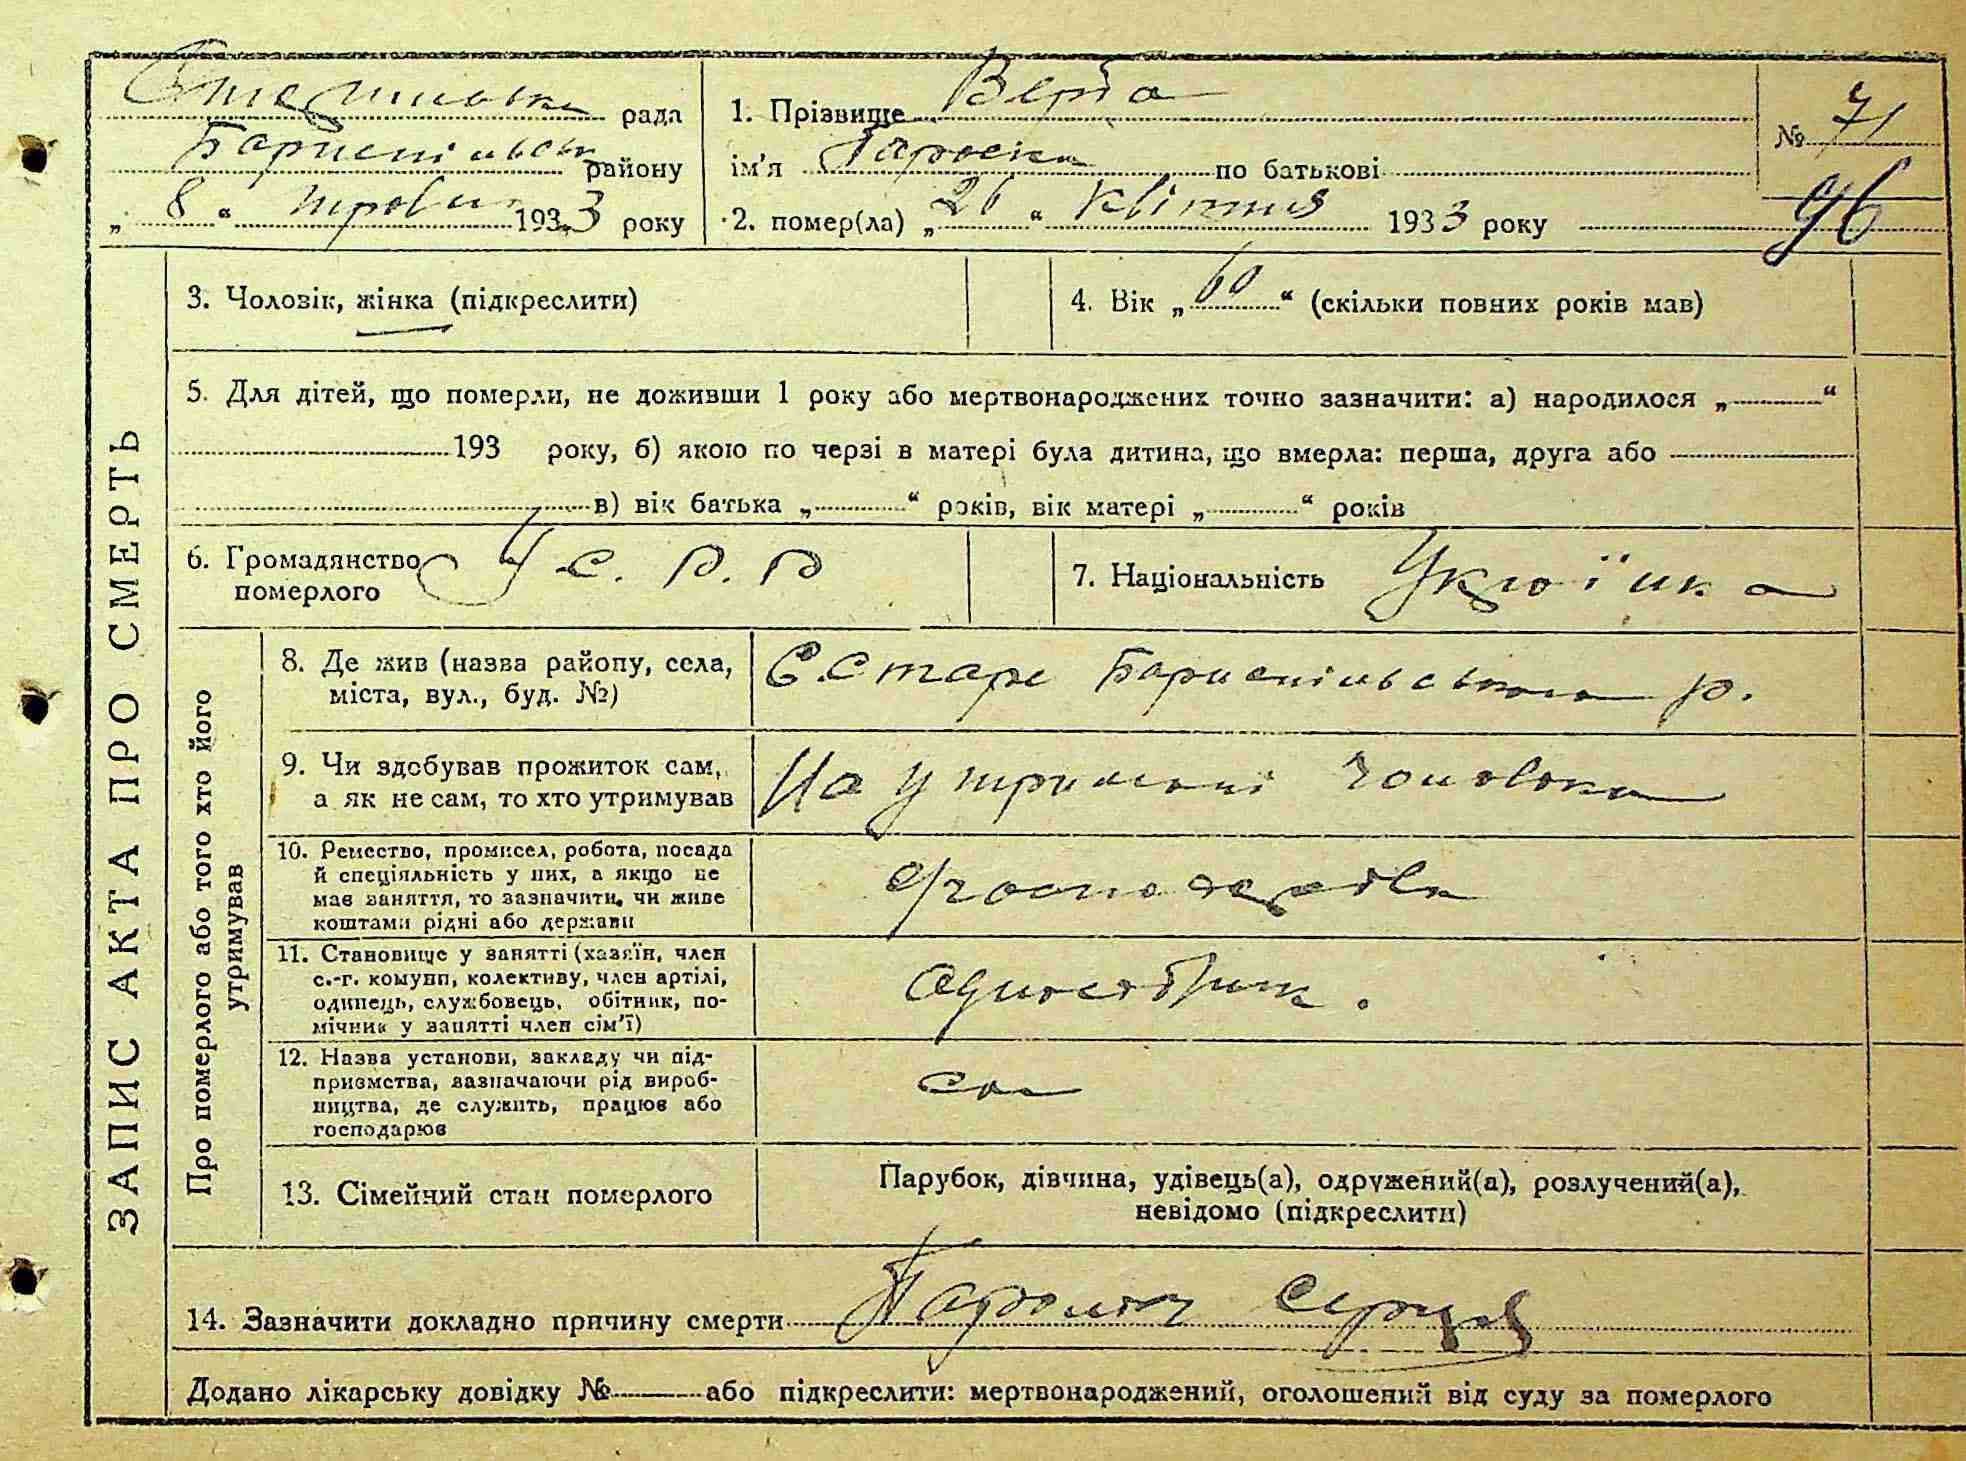 Старинська рада
Бориспільськ району
„ 8 “ травня 1933 року
1. Прізвище Верба
ім'я по батькові
2. помер(ла) „ 26 “ квітня 1933 року
№ 71
96
ЗАПИС АКТА ПРО СМЕРТЬ
3. Чоловік, жінка (підкреслити)
4. Вік „ 60 “ (скільки повних років мав)
5. Для дітей, що померли, не доживши 1 року або мертвонароджених точно зазначити: а) народилося „ “
193 року, б) якою по черзі в матері була дитина, що вмерла: перша, друга або
в) вік батька „ “ років, вік матері „ “ років
6. Громадянство
померлого
У.С.Р.Р
7. Національність Українка
Про померлого або того хто його
утримував
8. Де жив (назва району, села,
міста, вул., буд. №)
С.Старе Бориспільського р.
9. Чи здобував прожиток сам,
а як не сам, то хто утримував
На утриманні чоловіка
10. Ремество, промисел, робота, посада
й спеціяльність у них, а якщо не
мав заняття, то зазначити, чи живе
коштами рідні або держави
11. Становище у занятті (хазяїн, член
с.-г. комуни, колективу, член артілі,
одинець, службовець, обітник, по-
мічник у занятті член сім'ї)
одноосібник.
12. Назва установи, закладу чи під-
приємства, зазначаючи рід вироб-
ництва, де служить, працює або
господарює
13. Сімейний стан померлого
Парубок, дівчина, удівець(а), одружений(а), розлучений(а),
невідомо (підкреслити)
14. Зазначити докладно причину смерти серця
Додано лікарську довідку № або підкреслити: мертвонароджений, оголошений від суду за померлого